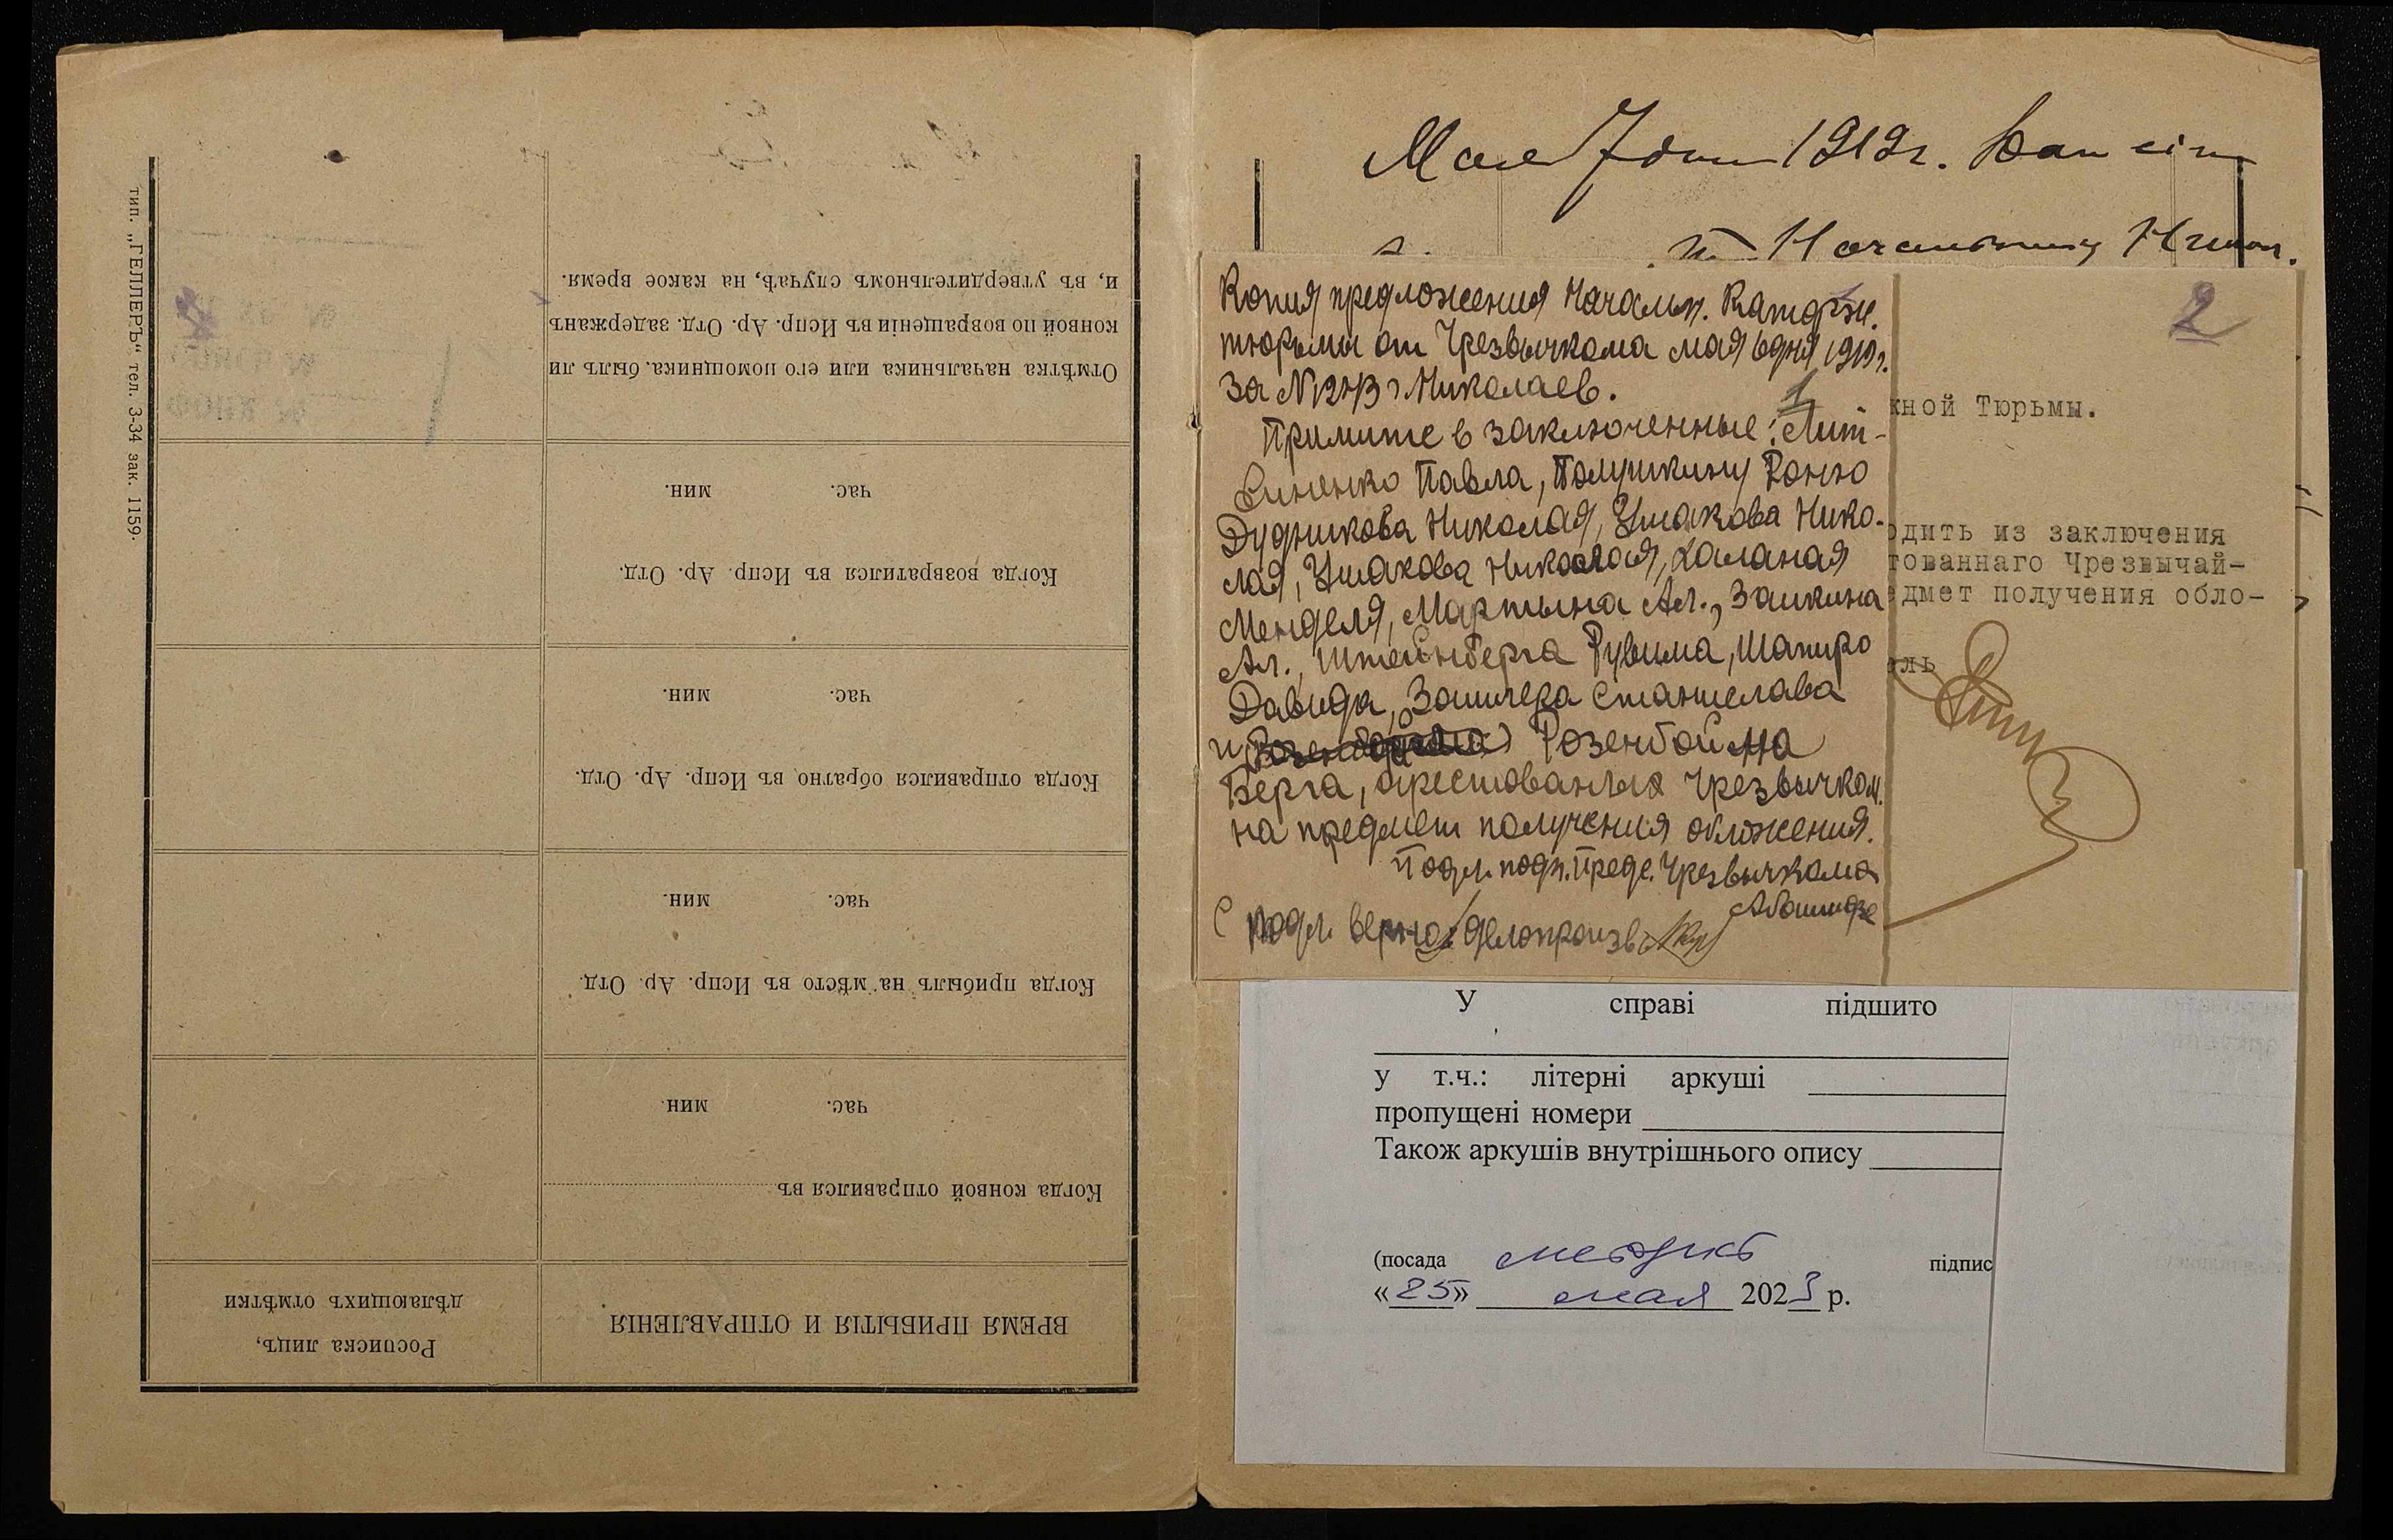 тип. „ГЕЛЛЕРЪ“ тел. 3-34 зак. 1159.
Росписка лицъ,
дѣлающихъ отмѣтки
ВРЕМЯ ПРИБЫТІЯ И ОТПРАВЛЕНІЯ
Когда конвой отправился въ
час. мин.
Когда прибылъ на мѣсто въ Испр. Ар. Отд.
час. мин.
Когда отправился обратно въ Испр. Ар. Отд.
час. мин.
Когда возвратился въ Испр. Ар. Отд.
час. мин.
Отмѣтка начальника или его помощника, былъ ли
конвой по возвращеніи въ Испр. Ар. Отд. задержанъ
и, въ утвердительномъ случаѣ, на какое время.
Мая 7 дня 1919 г.
Начальнику
2
Копия предложения Начальн. Каторжн.
тюрьмы от Чрезвычкома мая 6 дня 1919 г.
за № г. Николаев.
1
Примите в заключенные: Лит-
виненко Павла, Полушкину
Дудникова Николая, Ушакова Нико-
лая, Ушакова Николая, Каланая
Менделя, Мартына Ал., Заикина
Ал., Штейнберга Рувима, Шапиро
Давида, Станислава
и Розенбойма
Берга, арестованных Чрезвычком.
на предмет получения обложения.
Подл. подп. Предс. Чрезвычкома
Абашидзе
С подл. верно: делопроизв
жной Тюрьмы.
одить из заключения
тованнаго Чрезвычай-
едмет получения обло-
ль
У справі підшито
у т.ч.: літерні аркуші
пропущені номери
Також аркушів внутрішнього опису
(посада підпис
«25» мая 2023 р.